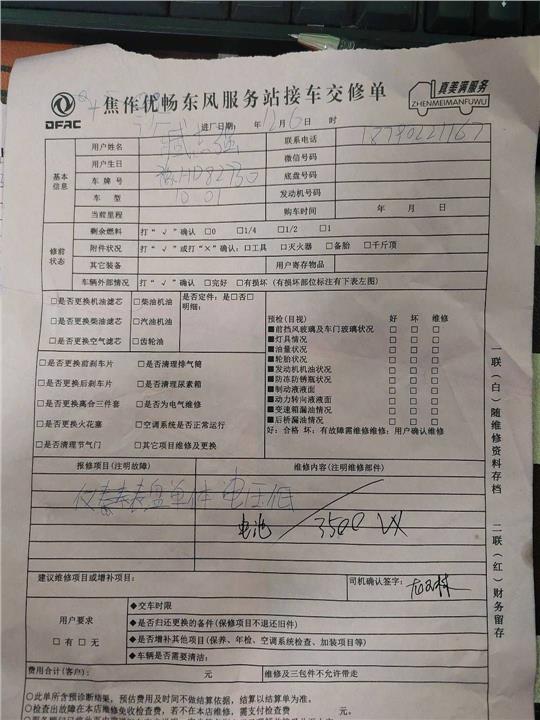 DFAC
焦作优畅东风服务站接车交修单
真美满服务
ZHENMEIMANFUWU
进厂日期: 年 12月 6日 时
基本信息
用户姓名
联系电话
用户生日
微信号码
车牌号
底盘号码
车型
发动机号码
当前里程
购车时间 年 月 日
修前状态
剩余燃料 打“√”确认 □0 □1/4 □1/2 □1
附件状况 打“√”或打“×”确认:□工具 □灭火器 □备胎 □千斤顶
其它装备 用户寄存物品
车辆外部情况 打“√”确认 □完好 □有损坏(有损坏部位标注有下表左图)
□是否更换机油滤芯 □柴油机油
□是否更换柴油滤芯 □汽油机油
□是否更换空气滤芯 □齿轮油
是否定件:是□否□
明细:
□是否更换前刹车片 □是否清理排气筒
□是否更换后刹车片 □是否清理尿素箱
□是否更换离合三件套 □是否为电气维修
□是否更换火花塞 □空调系统是否正常运行
□是否清理节气门 □其它项目维修及更换
预检(目视) 好 坏 维修
■前挡风玻璃及车门玻璃状况 □ □ □
■灯具情况 □ □ □
■油量状况 □ □ □
■轮胎状况 □ □ □
■发动机机油状况 □ □ □
■防冻防锈瓶状况 □ □ □
■制动液液面 □ □ □
■动力转向液液面 □ □ □
■变速箱漏油情况 □ □ □
■后桥漏油情况 □ □ □
好:合格 坏:有故障需维修维修:用户确认维修
报修项目(注明故障) 维修内容(注明维修部件)
单体 电压低
电池 3500
建议维修项目或增补项目:
司机确认签字:
用户要求
□有□无
◆交车时限
◆是否归还更换的备件(保修项目不退还旧件)
◆是否增补其他项目(保养、年检、空调系统检查、加装项目等)
◆车辆是否需要清洁:
费用合计(客户): 元 维修及三包件不允许带走
○此单所含预诊断结果,预估费用及时间不做结算依据,结算以结算单为准。
○检查出故障在本店维修免收检查费,若不在本店维修,需支付检查费 元。
一联(白)随维修资料存档
二联(红)财务留存